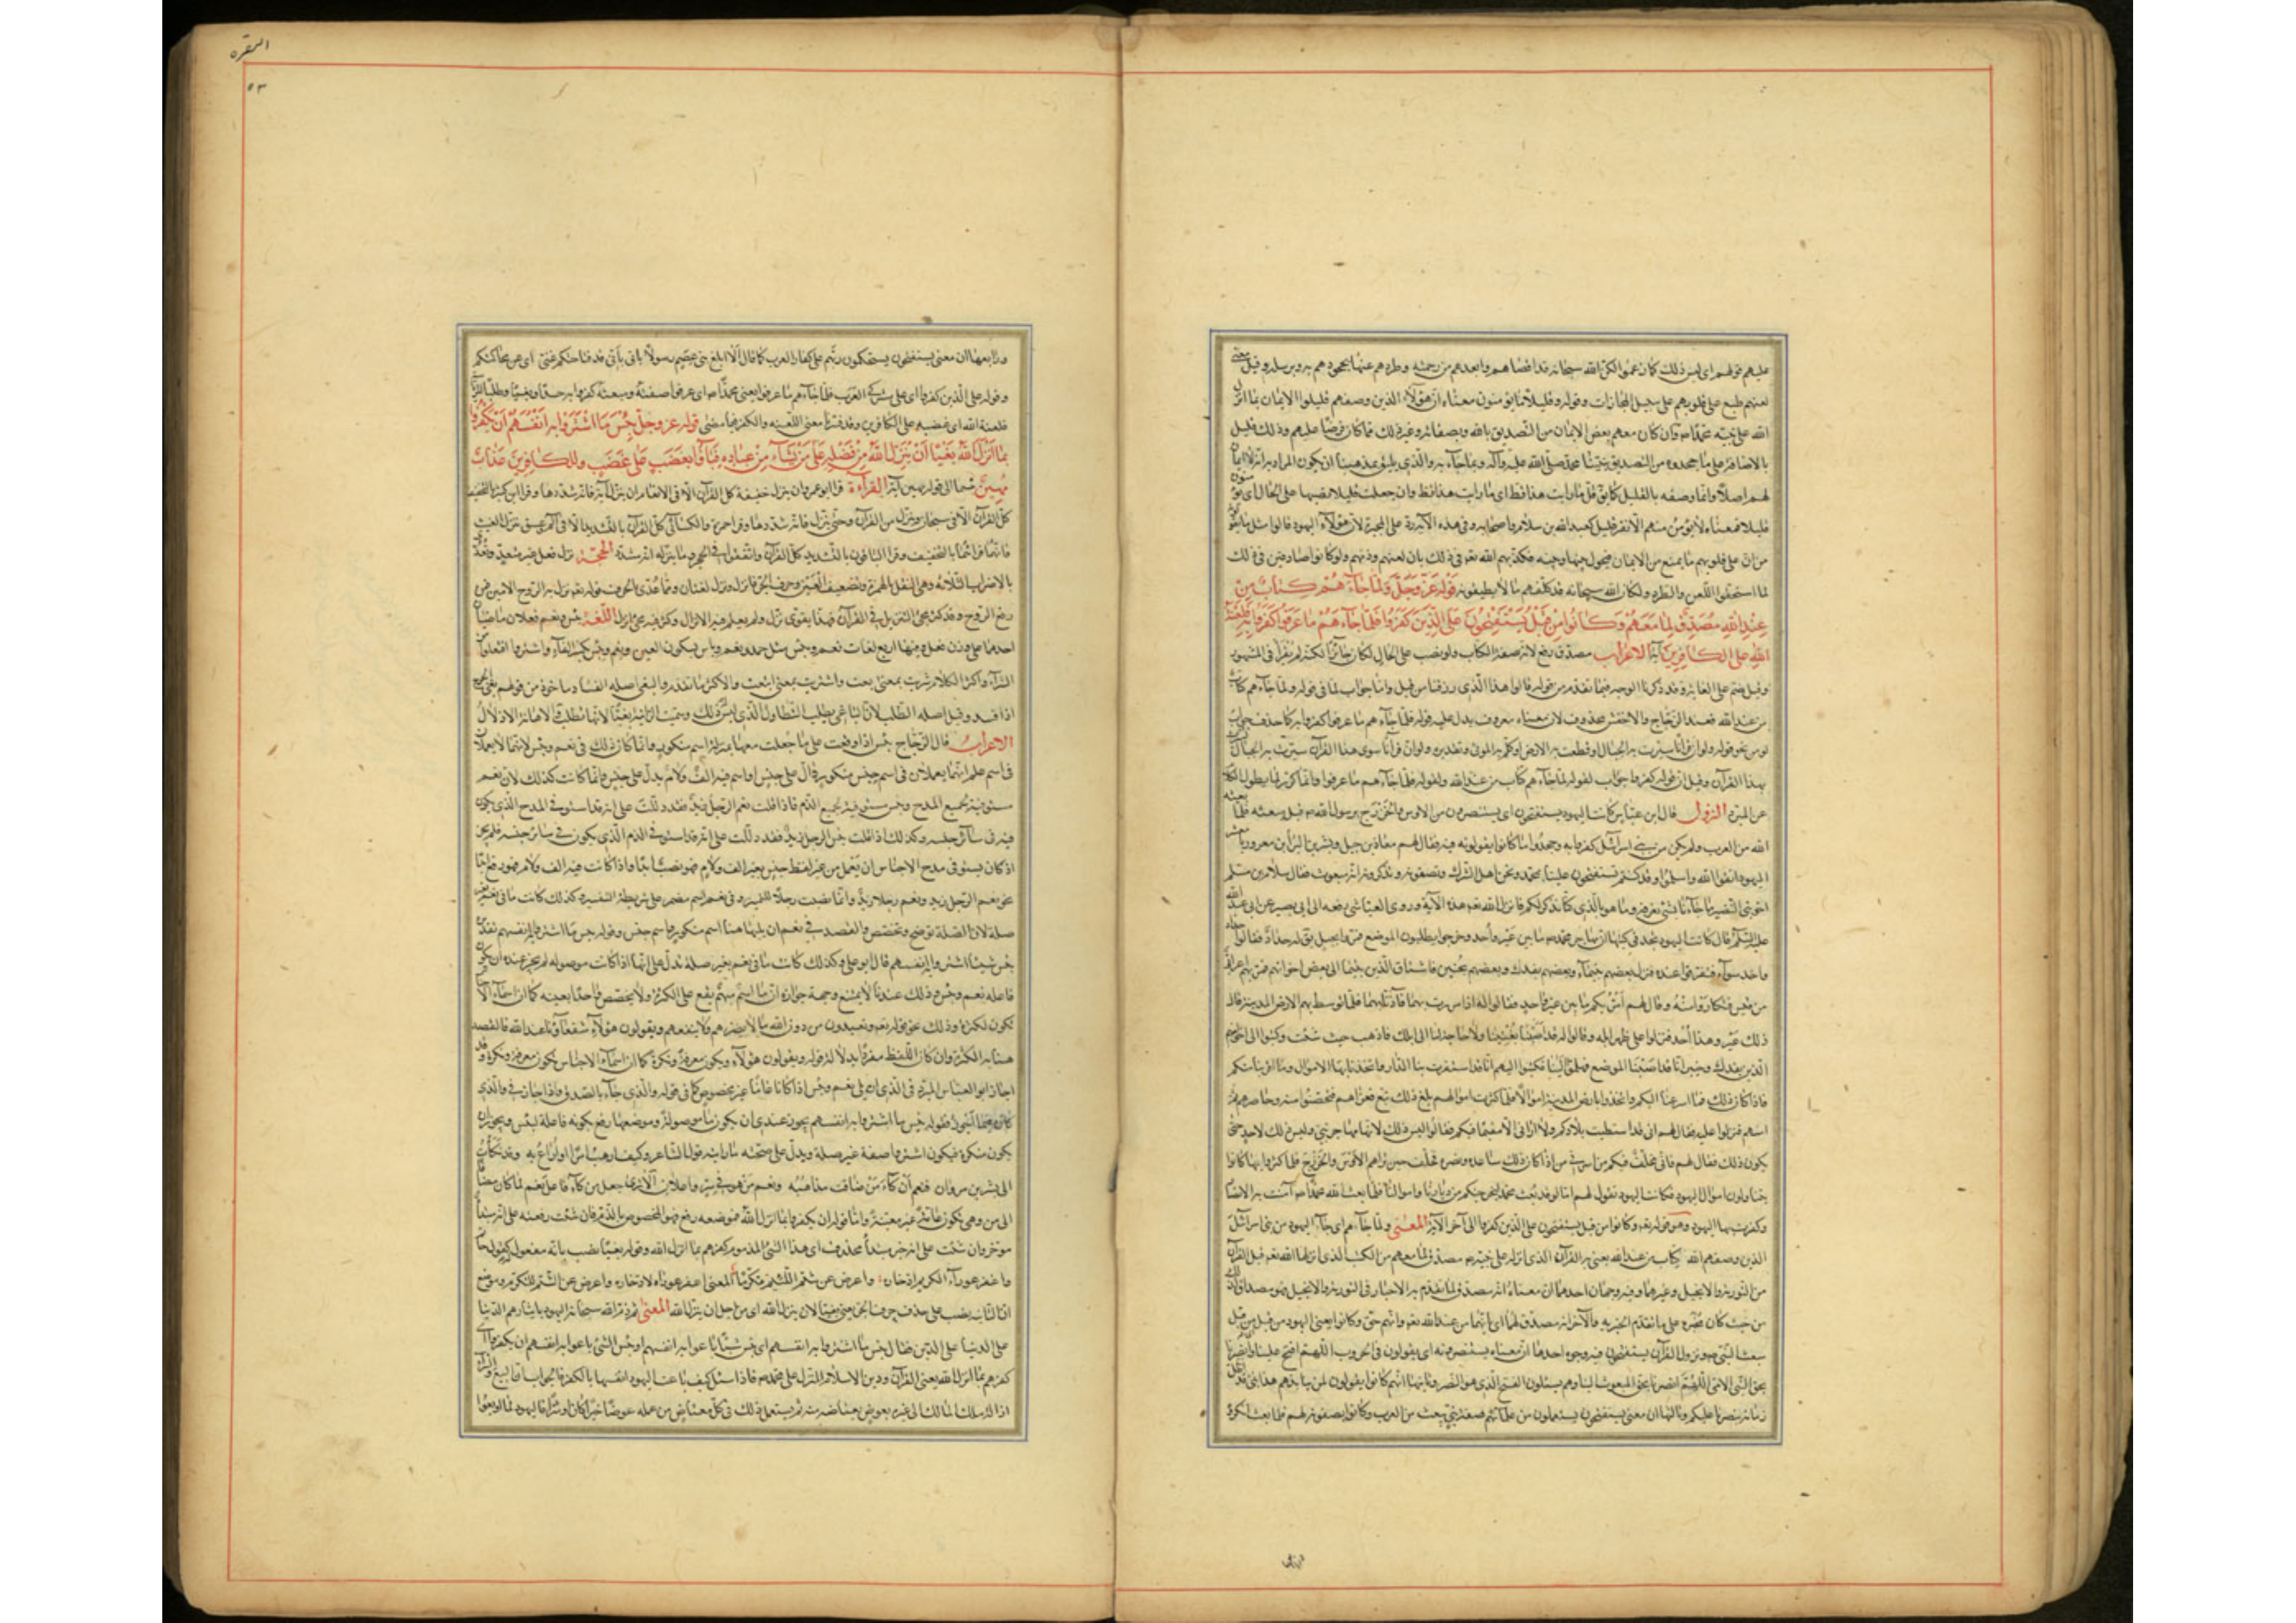 عليهم قولهم اى ليس ذلك كما زعموا لكن الله سبحانه قد اقصاهم وابعدهم من رحمته وطردهم عنها بجحودهم به وبرسله وقيل معنى
لعنهم طبع على قلوبهم على سبيل المجازات وقوله فقليلا ما يؤمنون معناه ان هؤلاء الذين وصفهم قليلوا الايمان بما انزل
الله على نبيه محمد ص وان كان معهم بعض الايمان من التصديق بالله وبصفاته وغير ذلك مما كان فرضا عليهم وذلك قليل
بالاضافة الى ما جحدوه من التصديق بنبينا محمد صلى الله عليه وآله وبما جاء به والذى يليق بمذهبنا ان يكون المراد به انه لا ايمان
لهم اصلا وانما وصفه بالقليل كما يق قل ما رايت هذا قط اى ما رايت هذا قط وان جعلت قليلا نصبا على الحال اى يؤمنون
قليلا فمعناه لا يؤمن منهم الا نفر قليل كعبد الله بن سلام واصحابه وفى هذه الآية رد على المجبرة لان هؤلاء اليهود قالوا مثل ما يقولون
من ان على قلوبهم ما يمنع من الايمان ويحول بينها وبينه فكذبهم الله تعم فى ذلك بان لعنهم وذمهم ولو كانوا صادقين فى ذلك
لما استحقوا اللعن والطرد ولكان الله سبحانه قد كلفهم ما لا يطيقونه قوله عز وجل وَلَمَّا جَاءَهُمْ كِتَابٌ مِنْ
عِنْدِ اللهِ مُصَدِّقٌ لِمَا مَعَهُمْ وَكَانُوا مِنْ قَبْلُ يَسْتَفْتِحُونَ عَلَى الَّذِينَ كَفَرُوا فَلَمَّا جَاءَهُمْ مَا عَرَفُوا كَفَرُوا بِهِ فَلَعْنَةُ
اللهِ عَلَى الْكَافِرِينَ آية الاعراب مصدق رفع لانه صفة الكتاب ولو نصب على الحال لكان جائزا لكنه لم يقرأ فى المشهور
وقيل ضم على الغاية وقد ذكرنا الوجه فيما تقدم من قوله قالوا هذا الذى رزقنا من قبل واما جواب لما فى قوله ولما جاءهم كتاب
من عند الله فعند الزجاج والاخفش محذوف لان معناه معروف يدل عليه قوله فلما جاءهم ما عرفوا كفروا به كما حذف جواب
لو من نحو قوله ولو ان قرآنا سيرت به الجبال او قطعت به الارض او كلم به الموتى وتقديره ولو ان قرآنا سوى هذا القرآن سيرت به الجبال لسيرت
بهذا القرآن وقيل ان قوله كفروا جواب لقوله لما جاءهم كتاب من عند الله ولقوله فلما جاءهم ما عرفوا وانما كرر لما لطول الكلام
عن المبرد النزول قال ابن عباس كانت اليهود يستفتحون اى يستنصرون على الاوس والخزرج برسول الله ص قبل مبعثه فلما بعثه
الله من العرب ولم يكن من بنى اسرائيل كفروا به وجحدوا ما كانوا يقولونه فيه فقال لهم معاذ بن جبل وبشر بن البراء بن معرور يا معشر
اليهود اتقوا الله واسلموا فقد كنتم تستفتحون علينا بمحمد ونحن اهل الشرك وتصفونه وتذكرون انه مبعوث فقال سلام بن مشكم
اخو بنى النضير ما جاءنا بشىء نعرفه وما هو بالذى كنا نذكر لكم فانزل الله تعم هذه الآية وروى العياشى رفعه الى ابى بصير عن ابى عبد الله
عليه السلم قال كانت اليهود تجد فى كتبها ان مهاجر محمد ص ما بين عير واحد فخرجوا يطلبون الموضع فمروا بجبل يق له حداد فقالوا حداد
واحد سواء فتفرقوا عنده فنزل بعضهم بتيماء وبعضهم بفدك وبعضهم بخيبر فاشتاق الذين بتيما الى بعض اخوانهم فمر بهم اعرابى
من قيس فتكاروا منه وقال لهم امر بكم ما بين عير واحد فقالوا له اذا مررت بهما فآذنا بهما فلما توسط بهم الارض المدينة قال
ذلك عير وهذا أحد فنزلوا على ظهر ابله وقالوا له قد اصبنا بغيتنا ولا حاجة لنا الى ابلك فاذهب حيث شئت وكتبوا الى اخوانهم
الذين بفدك وخيبر انا قد اصبنا الموضع فهلموا الينا فكتبوا اليهم انا قد استقرت بنا الدار واتخذنا بها الاموال وما اقربنا منكم
فاذا كان ذلك فما اسرعنا اليكم واتخذوا بارض المدينة اموالا فلما كثرت اموالهم بلغ ذلك تبع فغزاهم فتحصنوا منه وحاصرهم ثم
امنهم فنزلوا عليه فقال لهم انى قد استطبت بلادكم ولا ارانى الا مقيما فيكم فقالوا ليس ذلك لك انها مهاجر نبى وليس ذلك لاحد حتى
يكون ذلك فقال لهم فانى مخلف فيكم من اسرتى من اذا كان ذلك ساعده ونصره فخلف حيين تراهم الاوس والخزرج فلما كثروا بها كانوا
يتناولون اموال اليهود فكانت اليهود تقول لهم اما لو قد بعث محمد ليخرجنكم من ديارنا واموالنا فلما بعث الله محمدا ص آمنت به الانصار
وكفرت بها اليهود وهو قوله تعم وكانوا من قبل يستفتحون على الذين كفروا الى آخر الآية المعنى ولما جاءهم اى جاء اليهود من بنى اسرائيل
الذين وصفهم الله كتاب من عند الله يعنى به القرآن الذى انزله على نبيه ص مصدق لما معهم من الكتب الذى انزلها الله تعم قبل القرآن
من التورية والانجيل وغيرهما وفيه وجهان احدهما ان معناه انه مصدق لما تقدم به الاخبار فى التورية والانجيل فهو مصداق لذلك
من حيث كان مخبره على ما تقدم الخبر به والآخر انه مصدق لهما اى بانهما من عند الله تعم وانهم حق وكانوا يعنى اليهود من قبل اى من قبل
مبعث النبى ص ونزول القرآن يستفتحون فيه وجوه احدها ان معناه يستنصرون اى يقولون فى الحروب اللهم افتح علينا وانصرنا
بحق النبى الامى اللهم انصرنا بحق المبعوث الينا وهم يسئلون الفتح الذى هو النصر وثانيها انهم كانوا يقولون لمن ينابذهم هذا نبى قد اظل
زمانه ينصرنا عليكم وثالثها ان معنى يستفتحون يستعلمون من علمائهم صفة نبى يبعث من العرب وكانوا يصفونه لهم فلما بعث انكروه
البقره
٥٣
ورابعها ان معنى يستفتحون يستحكمون ربهم على كفار العرب كما قال الا ابلغ بنى عصم رسولا بانى عن فتاحتكم غنى اى عن محاكمتكم
وقوله على الذين كفروا اى على مشركى العرب فلما جاءهم ما عرفوا يعنى محمدا ص اى عرفوا صفته ومبعثه كفروا به حسدا وبغيا وطلبا للرياسة
فلعنة الله اى غضبه على الكافرين وقد فسرنا معنى اللعنة والكفر فيما مضى قوله عز وجل بِئْسَمَا اشْتَرَوْا بِهِ أَنْفُسَهُمْ أَنْ يَكْفُرُوا
بِمَا أَنْزَلَ اللهُ بَغْيًا أَنْ يُنَزِّلَ اللهُ مِنْ فَضْلِهِ عَلَى مَنْ يَشَاءُ مِنْ عِبَادِهِ فَبَاءُوا بِغَضَبٍ عَلَى غَضَبٍ وَلِلْكَافِرِينَ عَذَابٌ
مُهِينٌ القراءة قرا ابو عمرو ان ينزل خفيفة كل القرآن الا فى الانعام ان ينزل آية فانه شددها وقرا ابن كثير بالتخفيف
كل القرآن الا فى سبحان وننزل من القرآن وحتى تنزل فانه شددها وقرا حمزة والكسائى كل القرآن بالتشديد الا فى الم عسق ينزل الغيث
فانهما قراها بالتخفيف وقرا الباقون بالتشديد كل القرآن واتفقوا فى الحجر وما ننزله انه مشدد الحجة نزل فعل غير متعد ويعدى
بالاضرب الثلاثة وهى النقل بالهمزة وتضعيف العين وحرف الجر فانزل ونزل لغتان ومما عدى بالحرف قوله تعم نزل به الروح الامين فمن
رفع الروح وقد كثر مجئ التنزيل فى القرآن فهذا يقوى نزل ولم يعلم فيه الانزال وكثر فيه مجئ انزل اللغة بئس ونعم فعلان ماضيان
الاعراب قال الزجاج بئس اذا وقعت على ما جعلت معها بمنزلة اسم منكور وانما كان ذلك فى نعم وبئس لانهما لا يعملان
فى اسم علم انما يعملان فى اسم جنس منكور دال على جنس او اسم فيه الف ولام يدل على جنس وانما كانت كذلك لان نعم
مستوفية لجميع المدح وبئس مستوفية لجميع الذم فاذا قلت نعم الرجل زيد فقد دللت على انه قد استوفى المدح الذى يكون
فيه فى سائر جنسه وكذلك اذا قلت بئس الرجل زيد فقد دللت على انه قد استوفى الذم الذى يكون فى سائر جنسه فلم يجز
اذ كان يستوفى مدح الاجناس ان يعمل من غير لفظ جنس بغير الف ولام فهو نصب ابدا واذا كانت فيه الف ولام فهو رفع ابدا
نحو نعم الرجل زيد ونعم رجلا زيد وانما نصبت رجلا للتمييز وفى نعم اسم مضمر على شريطة التفسير وكذلك كانت ما فى نعم بغير
صلة لان الصلة توضح وتخصص والقصد فى نعم ان يليها هنا اسم منكور واسم جنس وقوله بئس ما اشتروا به انفسهم تقديره
بئس شيئا اشتروا به انفسهم قال ابو على وكذلك كانت ما فى نعم بغير صلة تدل على انها اذا كانت موصولة لم يجز عنده ان تكون
فاعلة نعم وبئس وذلك عندنا لا يمتنع وجهة جوازه ان ما اسم مبهم يقع على الكثرة ولا يخصص واحدا بعينه كما ان اسماء الاجناس
تكون للكثرة وذلك نحو قوله تعم ويعبدون من دون الله ما لا يضرهم ولا ينفعهم ويقولون هؤلاء شفعاؤنا عند الله فالقصد
هنا به الكثرة وان كان اللفظ مفردا بدلالة قوله ويقولون هؤلاء ويكون معرفة ونكرة كما ان اسماء الاجناس تكون معرفة ونكرة وقد
اجاز ابو العباس المبرد فى الذى ان يلى نعم وبئس اذا كان عاما غير مخصوص كما فى قوله والذى جاء بالصدق واذا جاز فى الذى
كان فى ما اجوز فقوله بئس ما اشتروا به انفسهم يجوز عندى ان يكون ما موصولة وموضعها رفع بكونه فاعلة لبئس ويجوز ان
يكون منكرة فيكون اشتروا صفة غير صلة ويدل على صحة ما رايته قول الشاعر وكيف ارهب امرا او اراع به وقد زكأت
الى بشر بن مروان فنعم مزكأ من ضاقت مذاهبه ونعم من هو فى سر واعلان
موخر وان شئت على انه خبر مبتدأ محذوف اى هذا الشئ المذموم كفرهم بما انزل الله وقوله بغيا نصب بانه مفعول له كقول حاتم
واغفر عوراء الكريم ادخاره واعرض عن شتم اللئيم تكرما المعنى اغفر عوراه لادخاره واعرض عن الشتم للتكرم وموضع
ان الثانية نصب على حذف حرف الجر يعنى بغيا لان ينزل الله اى من اجل ان ينزل الله المعنى ثم ذم الله سبحانه اليهود بايثارهم الدنيا
على الدين فقال بئس ما اشتروا به انفسهم اى بئس شيئا باعوا به انفسهم او بئس الشئ باعوا به انفسهم ان يكفروا اى
كفرهم بما انزل الله يعنى القرآن ودين الاسلام المنزل على محمد ص فاذا سئل كيف باعت اليهود انفسها بالكفر فالجواب